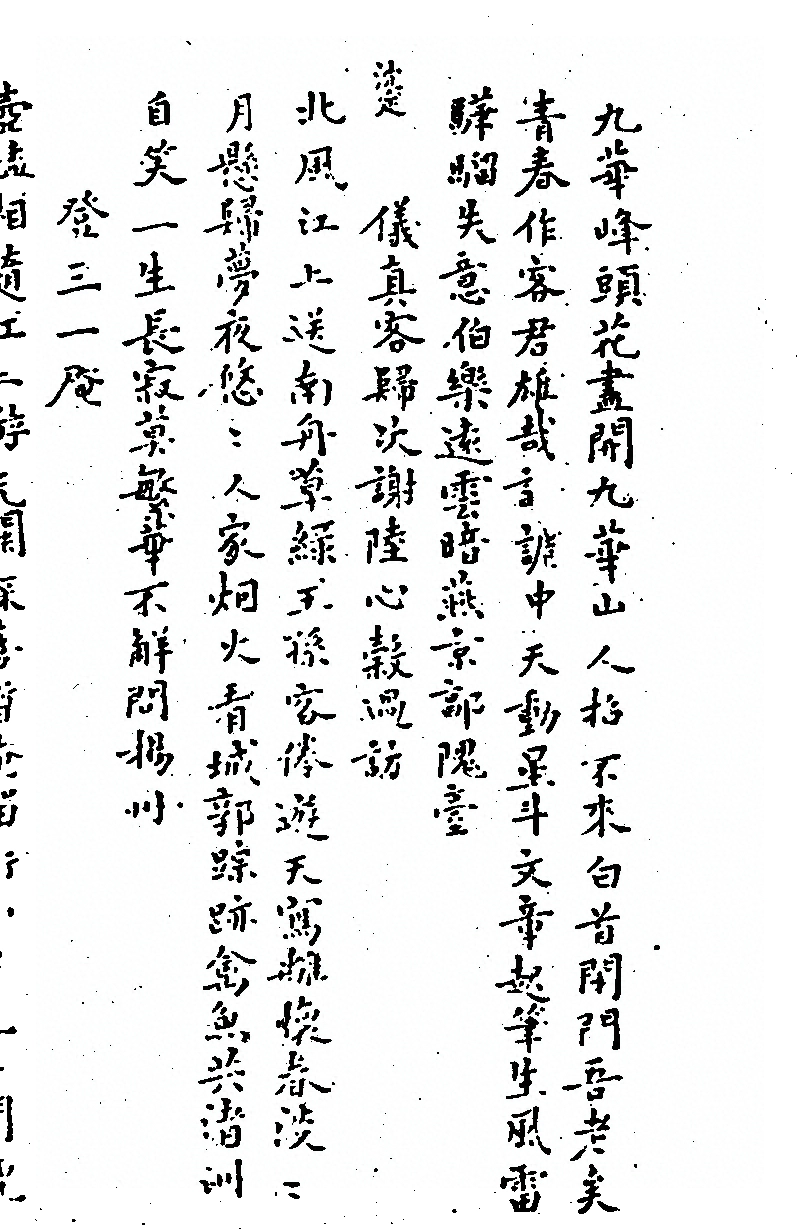 九華峰頭花盡開九華山人招不來白首閉門吾老矣
青春作客君雄哉言謔中天動星斗文章起筆生風雷
驊騮失意伯樂遠雲暗燕京郭隗臺
儀真客歸次謝陸心穀過訪
北風江上送南舟草綠王孫客倦遊天寫離懷春淡〻
月懸歸夢夜悠〻人家烟火看城郭踪跡禽魚共渚洲
自笑一生長寂莫繁華不解問揚州
登三一庵
相隨江上游